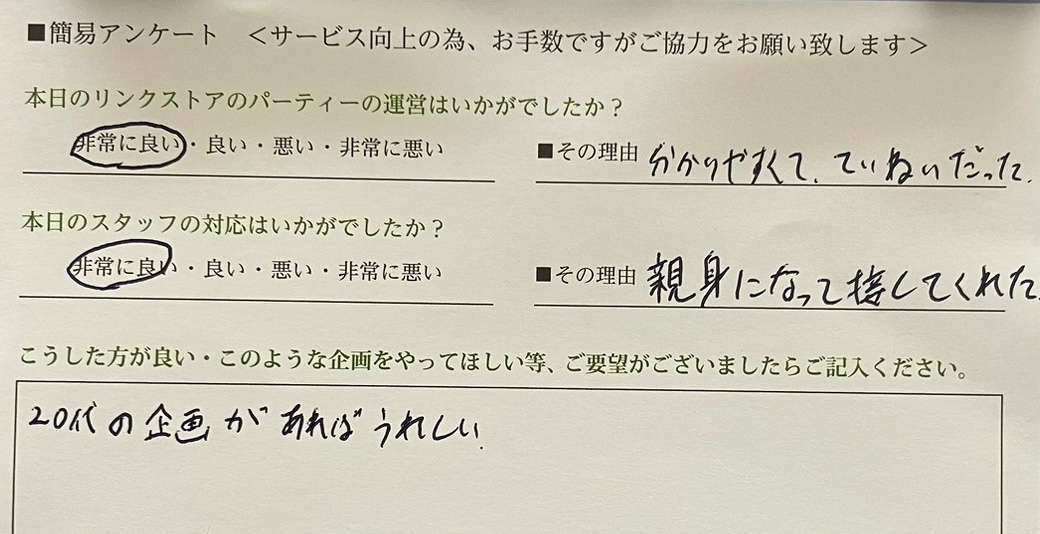 ■簡易アンケート ＜サービス向上の為、お手数ですがご協力をお願い致します＞
本日のリンクストアのパーティーの運営はいかがでしたか？
非常に良い・良い・悪い・非常に悪い ■その理由 分かりやすくて、ていねいだった.
本日のスタッフの対応はいかがでしたか？
非常に良い・良い・悪い・非常に悪い ■その理由 親身になって接してくれた
こうした方が良い・このような企画をやってほしい等、ご要望がございましたらご記入ください。
20代の企画があればうれしい.